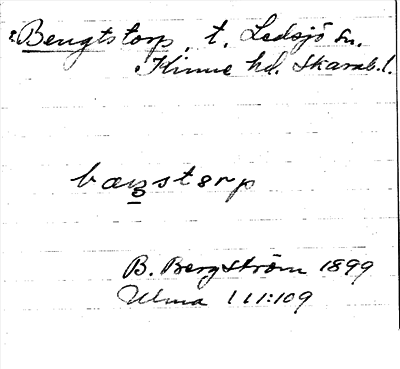 Bengtstorp, t. Ledsjö sn.
Kinne hd. Skarab.l.
bæŋstɷrp
B. Bergström 1899
Ulma 111:109